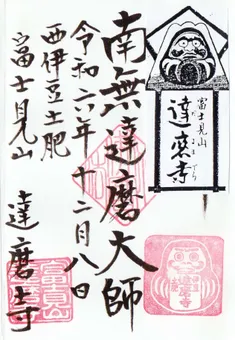 富士見山
達磨寺
南無達磨大師
令和六年十二月八日
西伊豆土肥
富士見山
達磨寺